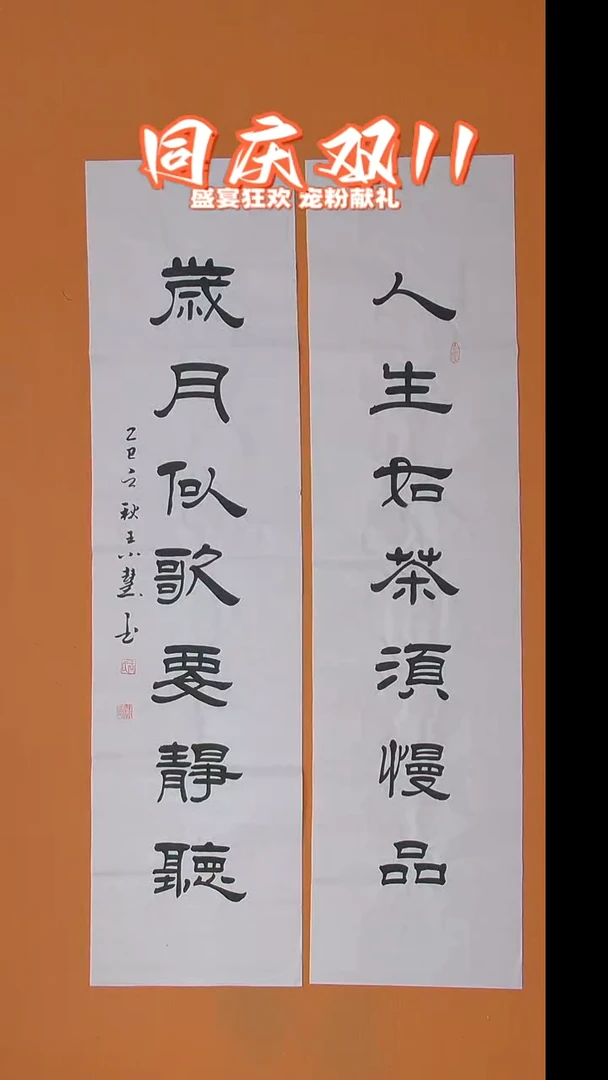 同庆双11
盛宴狂欢 宠粉献礼
人生如茶須慢品
歲月似歌要靜聽
乙巳立秋